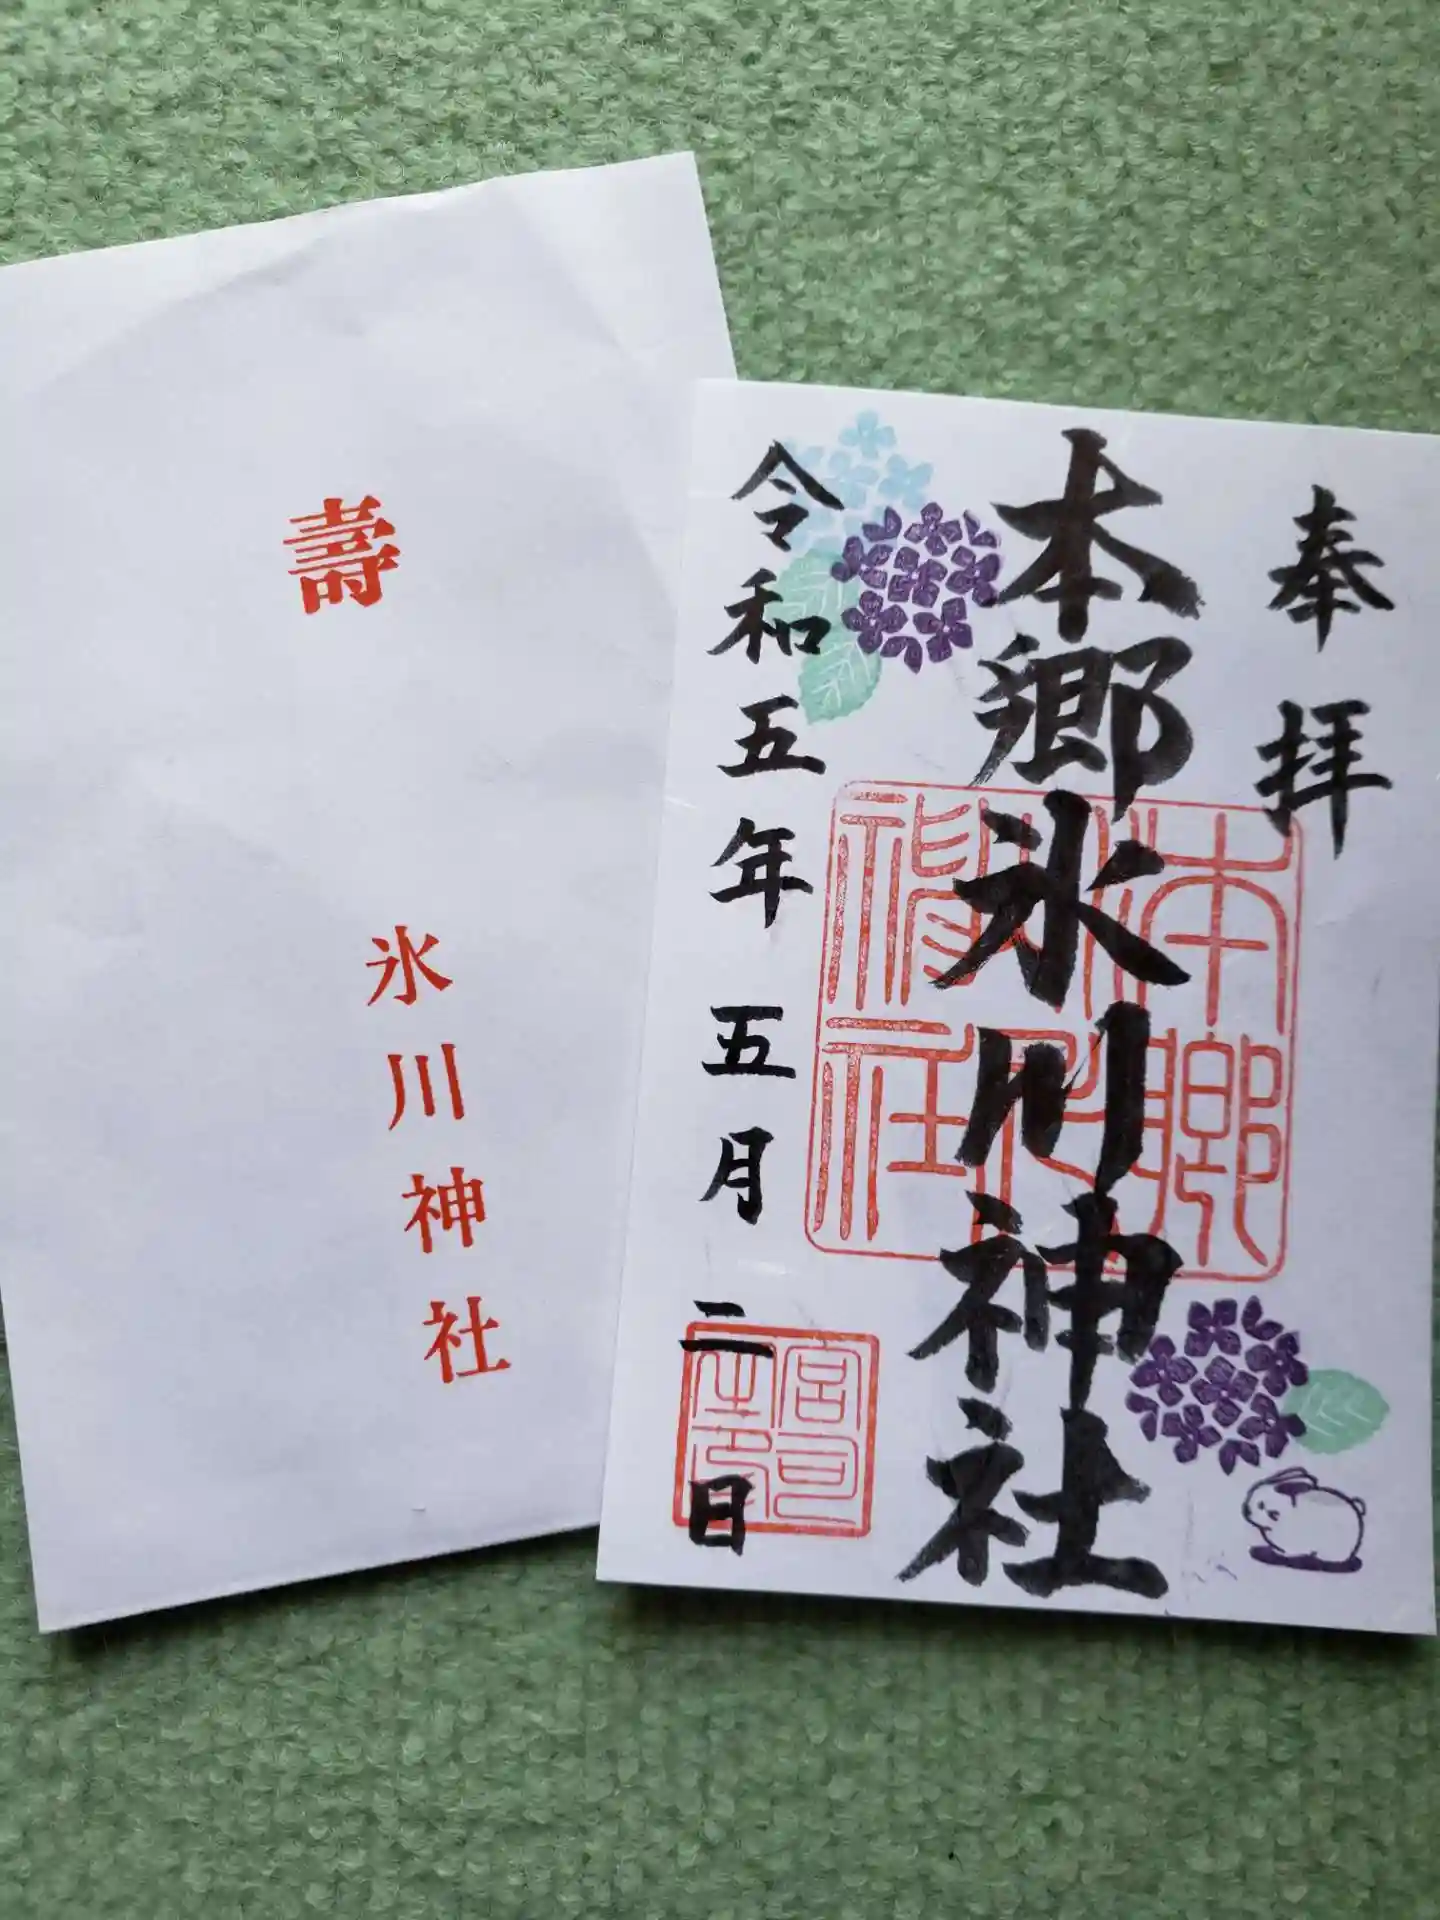 壽
氷川神社
奉拝
本郷氷川神社
令和五年五月二日
本郷
神社